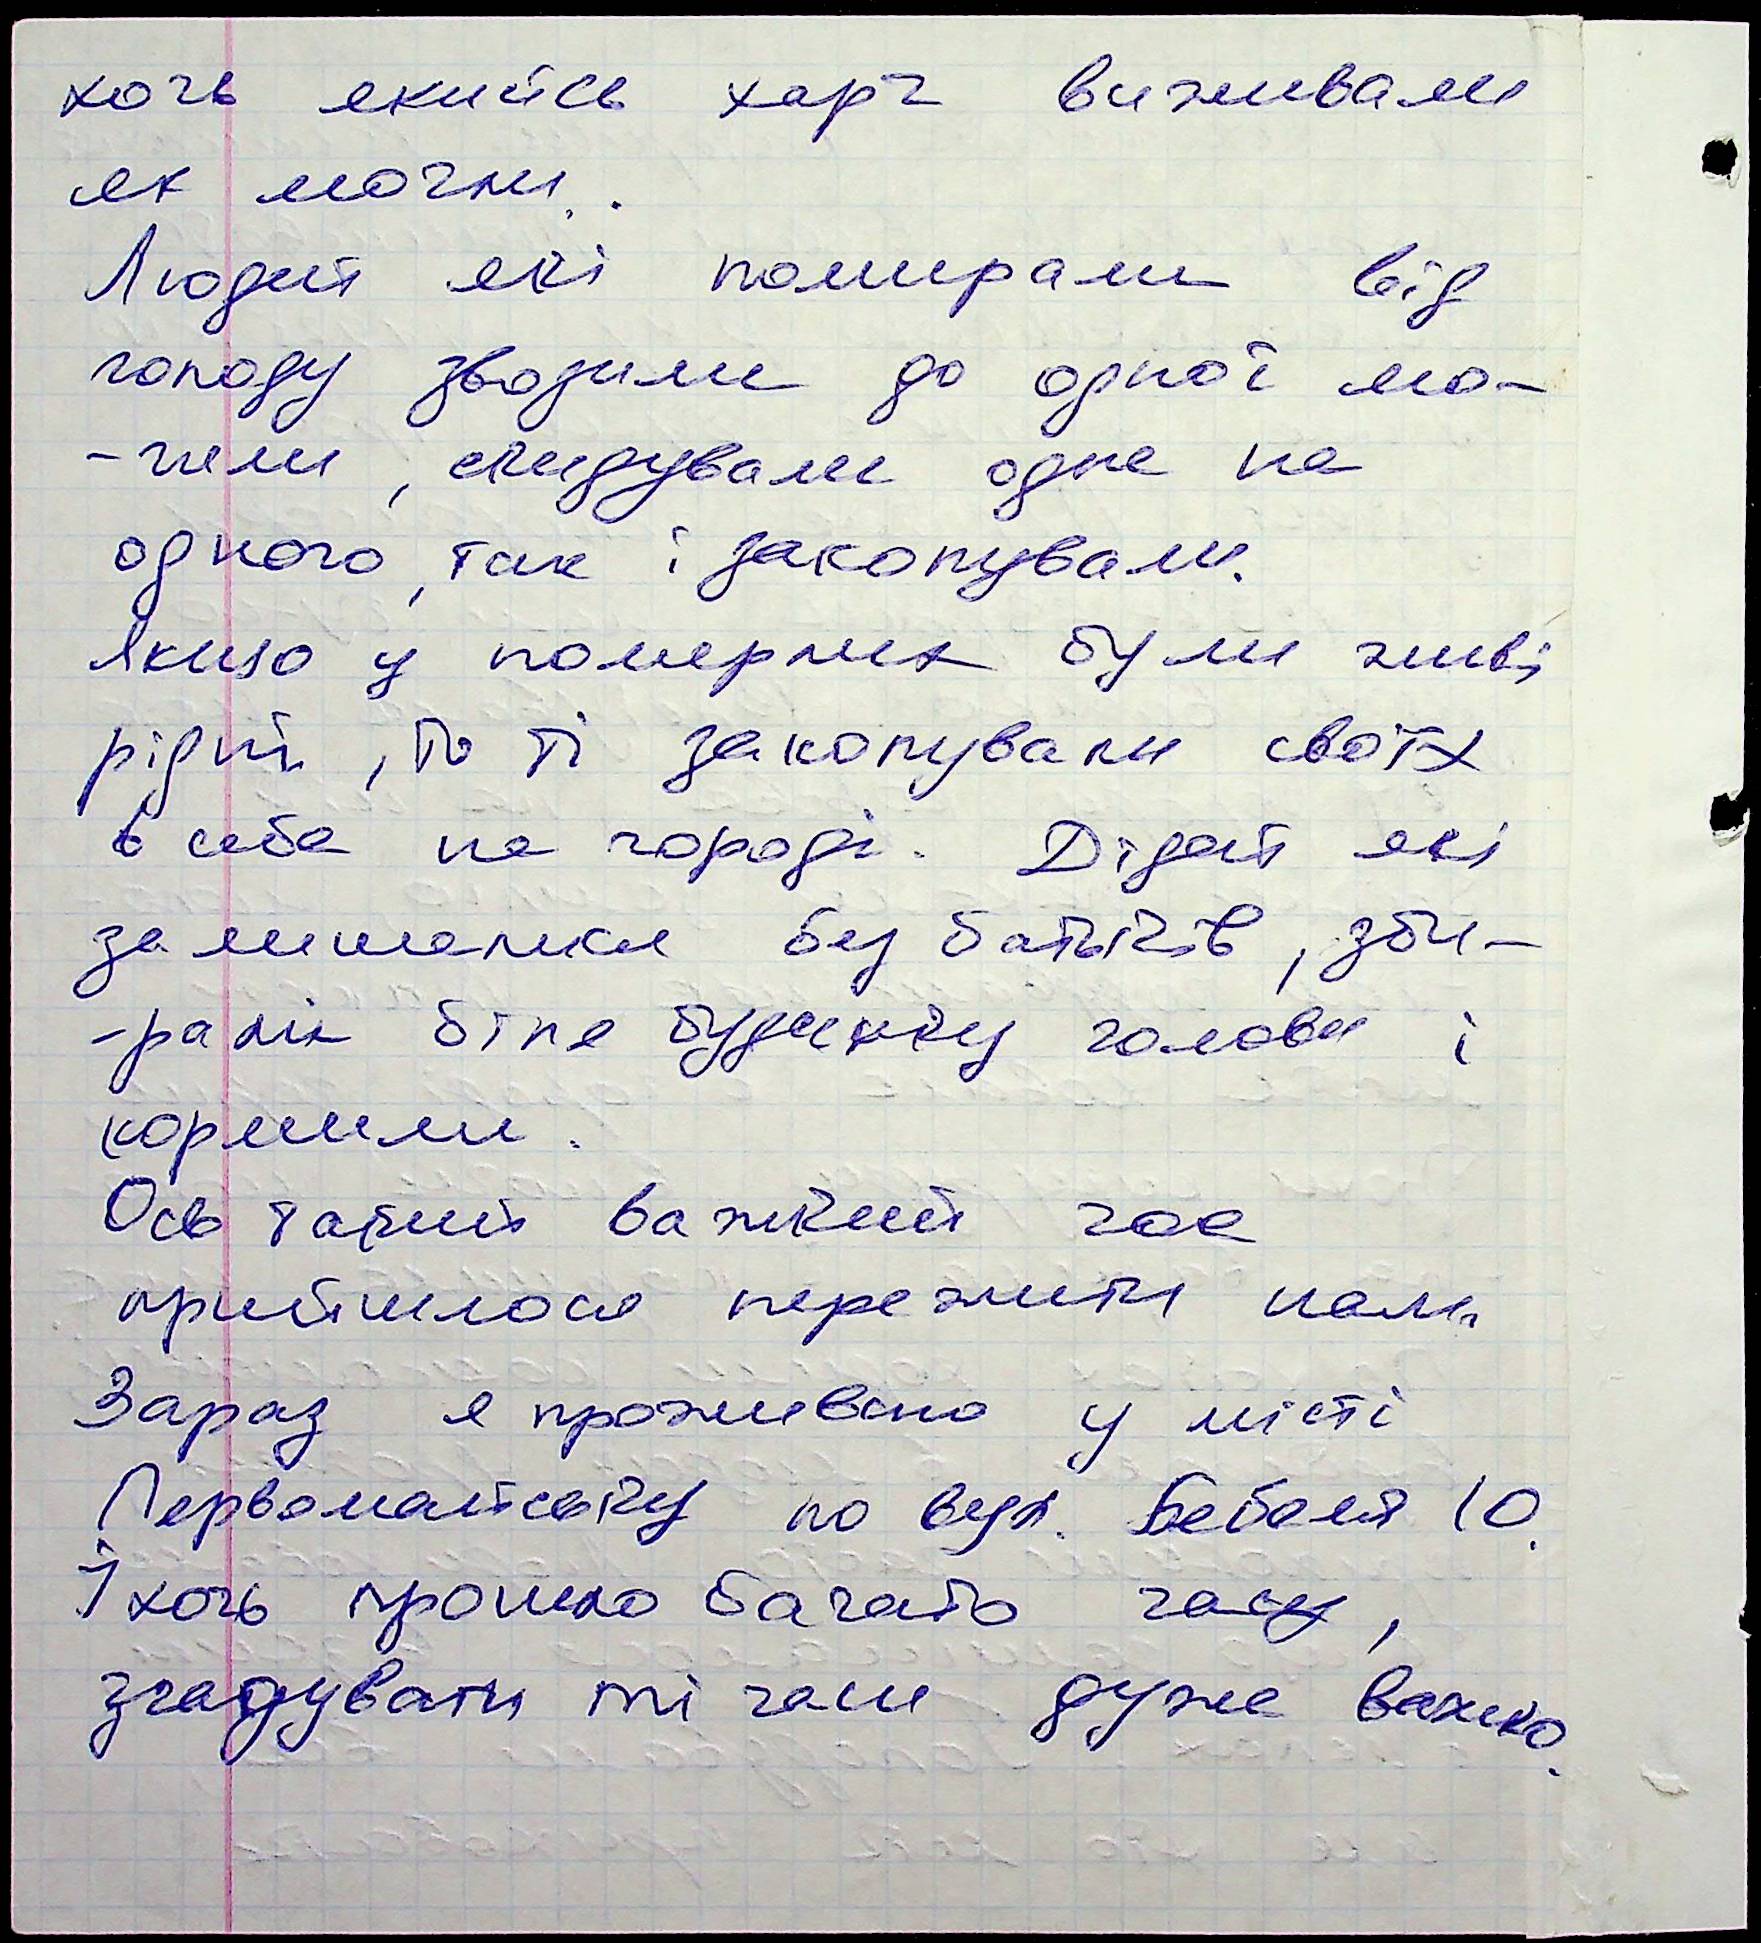 хоть якийсь харч виживали
як могли.
Людей які помирали від
голоду зводили до одної мо-
-гили, скидували одне на
одного, так і закопували.
Якшо у померлих були живі
рідні, то ті закопували своїх
в себе на городі. Дітей які
залишилися без батьків, зби-
-рали біля будинку голови і
кормили.
Ось такий важкий час
прийшлося пережити нам.
Зараз я проживаю у місті
Первомайську по вул. Бебеля 10.
І хоть прошло багато часу,
згадувати ті часи дуже важко.